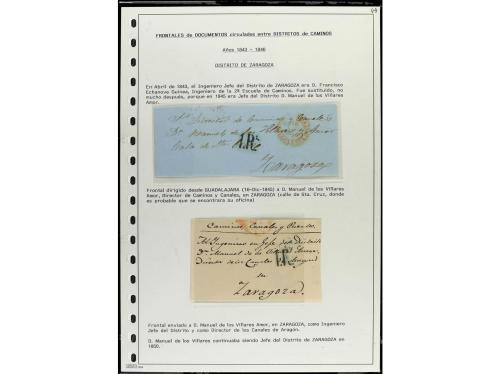 FRONTALES de DOCUMENTOS circulados entre DISTRITOS de CAMINOS
Años 1843 - 1846
DISTRITO DE ZARAGOZA
En Abril de 1843, el Ingeniero Jefe del Distrito de ZARAGOZA era D. Francisco
Echanove Guinea, Ingeniero de la 2ª Escuela de Caminos. Fue sustituido, no
mucho después, porque en 1845 era Jefe del Distrito D. Manuel de los Villares
Amor.
Sr. Director de Caminos y Canales
Dn. Manuel de los Villares y Amor
Zaragoza
Frontal dirigido desde GUADALAJARA (16-Dic-1845) a D. Manuel de los Villares
Amor, Director de Caminos y Canales, en ZARAGOZA (calle de Sta. Cruz, donde
es probable que se encontrara su oficina)
Caminos Canales y Puertos
Al Ingeniero en Jefe del distrito
Dn. Manuel de los Villares Amor,
Director de los Canales de Aragon
en
Zaragoza.
Frontal enviado a D. Manuel de los Villares Amor, en ZARAGOZA, como Ingeniero
Jefe del Distrito y como Director de los Canales de Aragón.
D. Manuel de los Villares continuaba siendo Jefe del Distrito de ZARAGOZA en
1850.